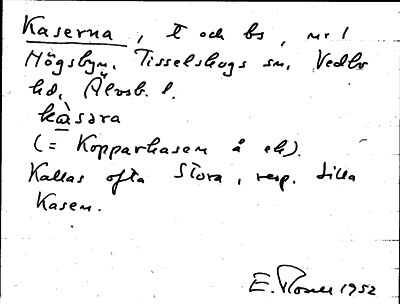 Kaserna, t och bs, nr 1
Högsbyn. Tisselskogs sn. Vedbo
hd, Älvsb. l.
kàsara
(= Kopparkasen å ek).
Kallas ofta Stora, resp. Lilla
Kasen.
E. 1952